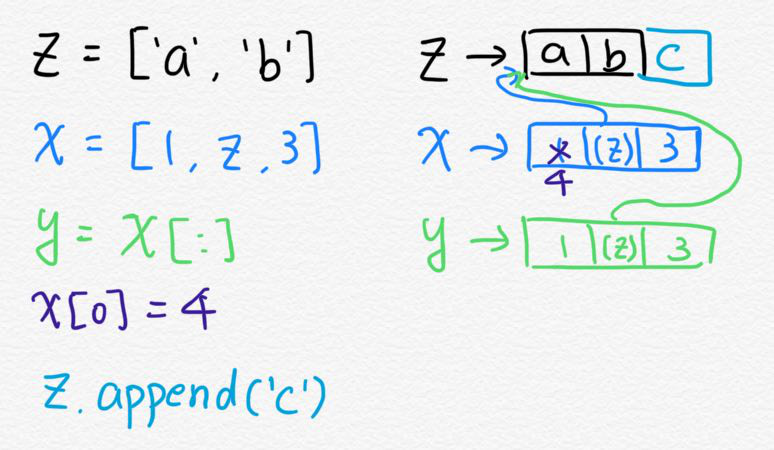 z = ['a', 'b']
x = [1, z, 3]
y = x[:]
x[0] = 4
z.append('c')
z → a b c
x → 1 (z) 3
4
y → 1 (z) 3